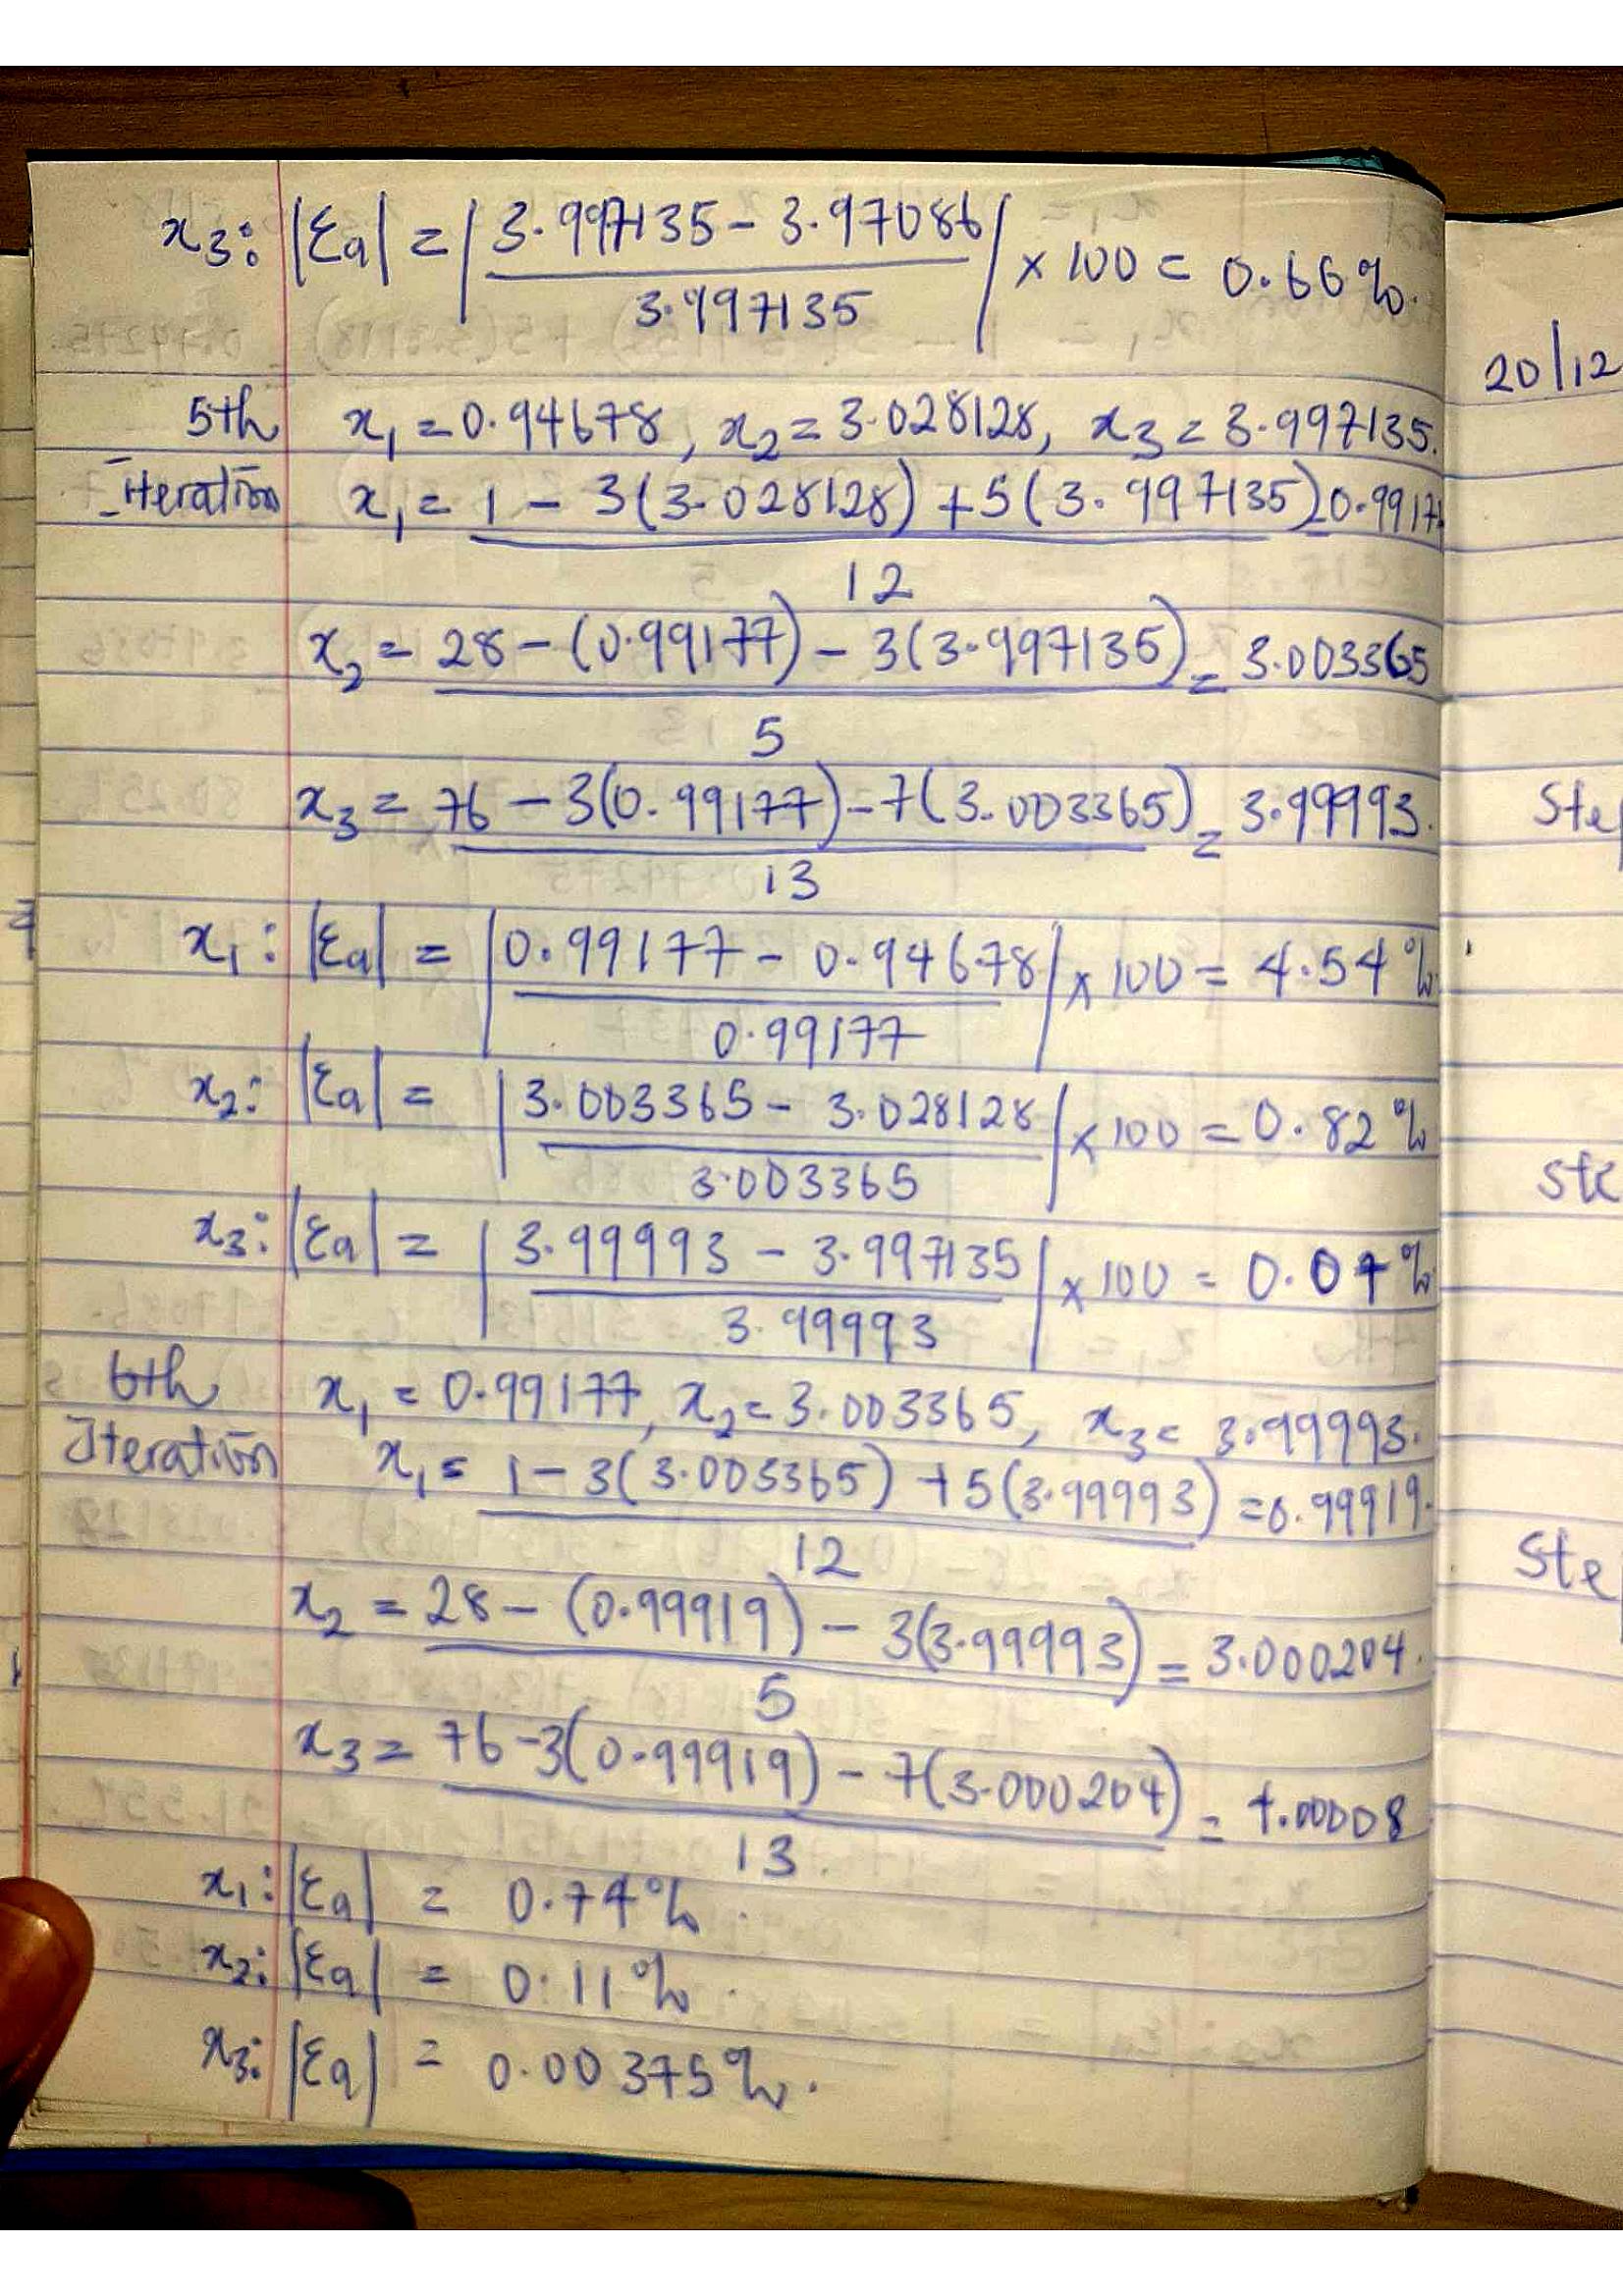 x₃: |εa| = | 3.997135 - 3.97086 / 3.997135 | × 100 = 0.66%.
5th x₁ = 0.94678, x₂ = 3.028128, x₃ = 3.997135.
Iteration x₁ = 1 - 3(3.028128) + 5(3.997135) = 0.99177
12
x₂ = 28 - (0.99177) - 3(3.997135) = 3.003365
5
x₃ = 76 - 3(0.99177) - 7(3.003365) = 3.99993.
13
x₁: |εa| = | 0.99177 - 0.94678 / 0.99177 | × 100 = 4.54%
x₂: |εa| = | 3.003365 - 3.028128 / 3.003365 | × 100 = 0.82%
x₃: |εa| = | 3.99993 - 3.997135 / 3.99993 | × 100 = 0.07%
6th x₁ = 0.99177, x₂ = 3.003365, x₃ = 3.99993.
Iteration x₁ = 1 - 3(3.003365) + 5(3.99993) = 0.99919.
12
x₂ = 28 - (0.99919) - 3(3.99993) = 3.000204.
5
x₃ = 76 - 3(0.99919) - 7(3.000204) = 4.00008
13.
x₁: |εa| = 0.74%.
x₂: |εa| = 0.11%.
x₃: |εa| = 0.00375%.
20/12